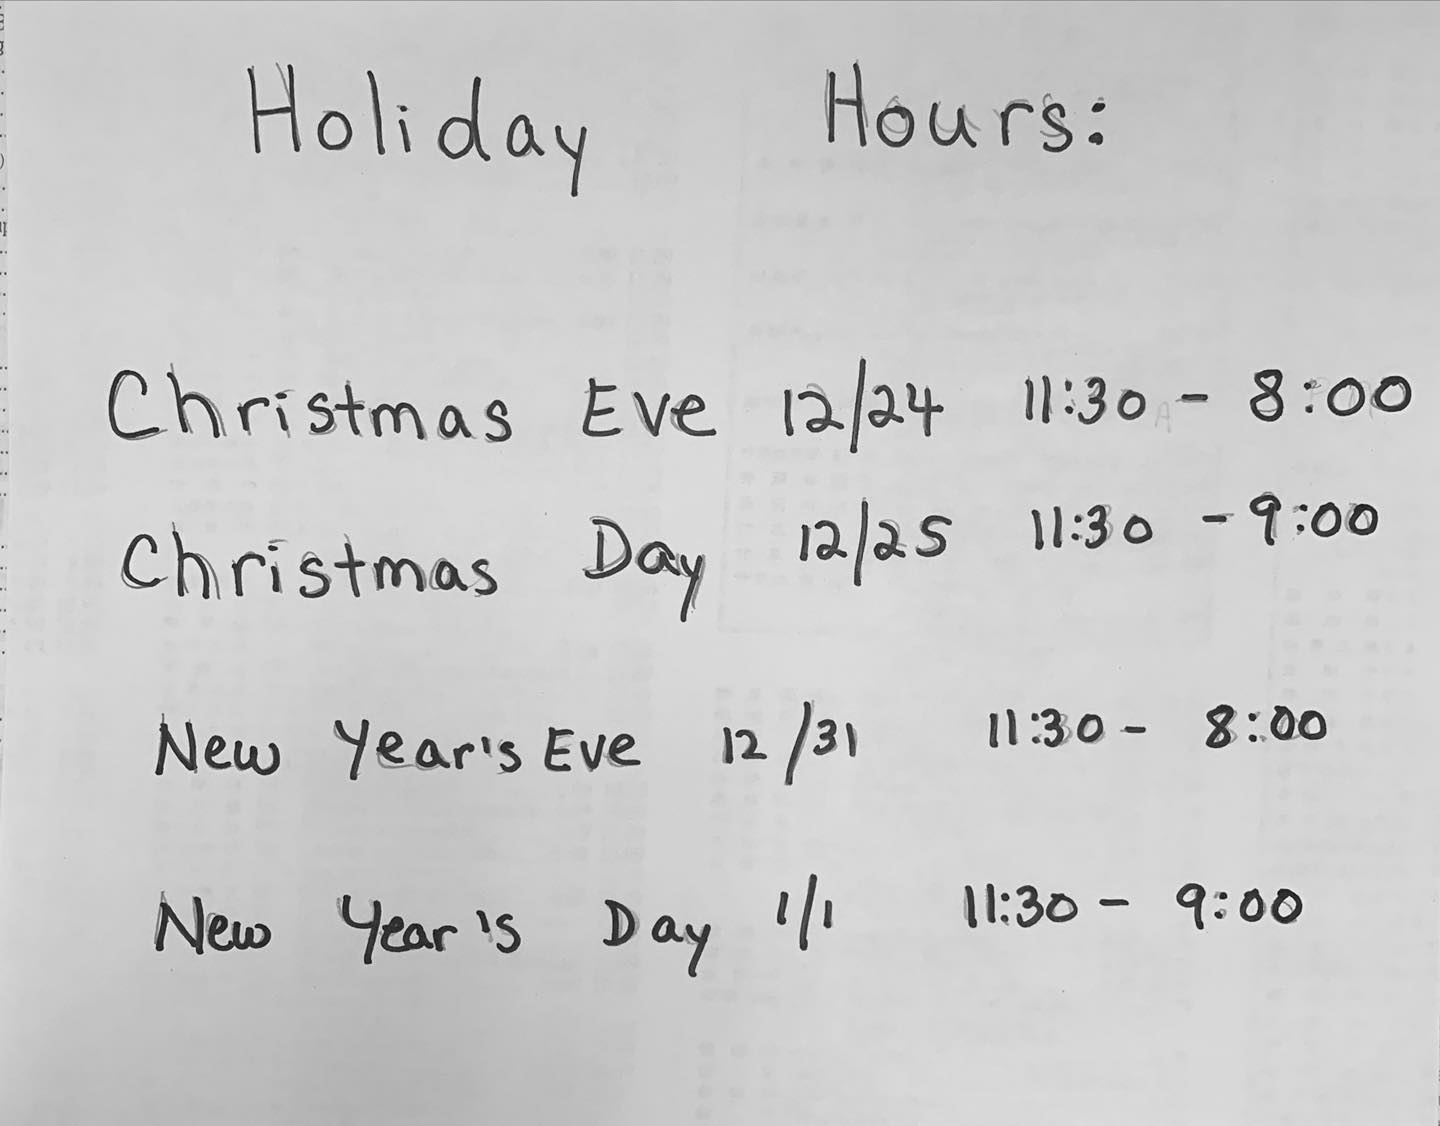 Holiday Hours:
Christmas Eve 12/24 11:30 - 8:00
Christmas Day 12/25 11:30 - 9:00
New Year's Eve 12/31 11:30 - 8:00
New Year's Day 1/1 11:30 - 9:00